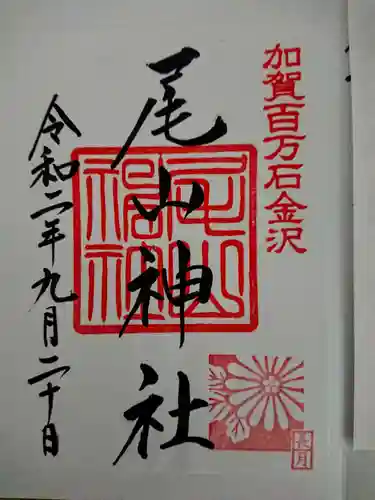 加賀百万石金沢
尾山神社
令和二年九月二十日
尾山神社
長月